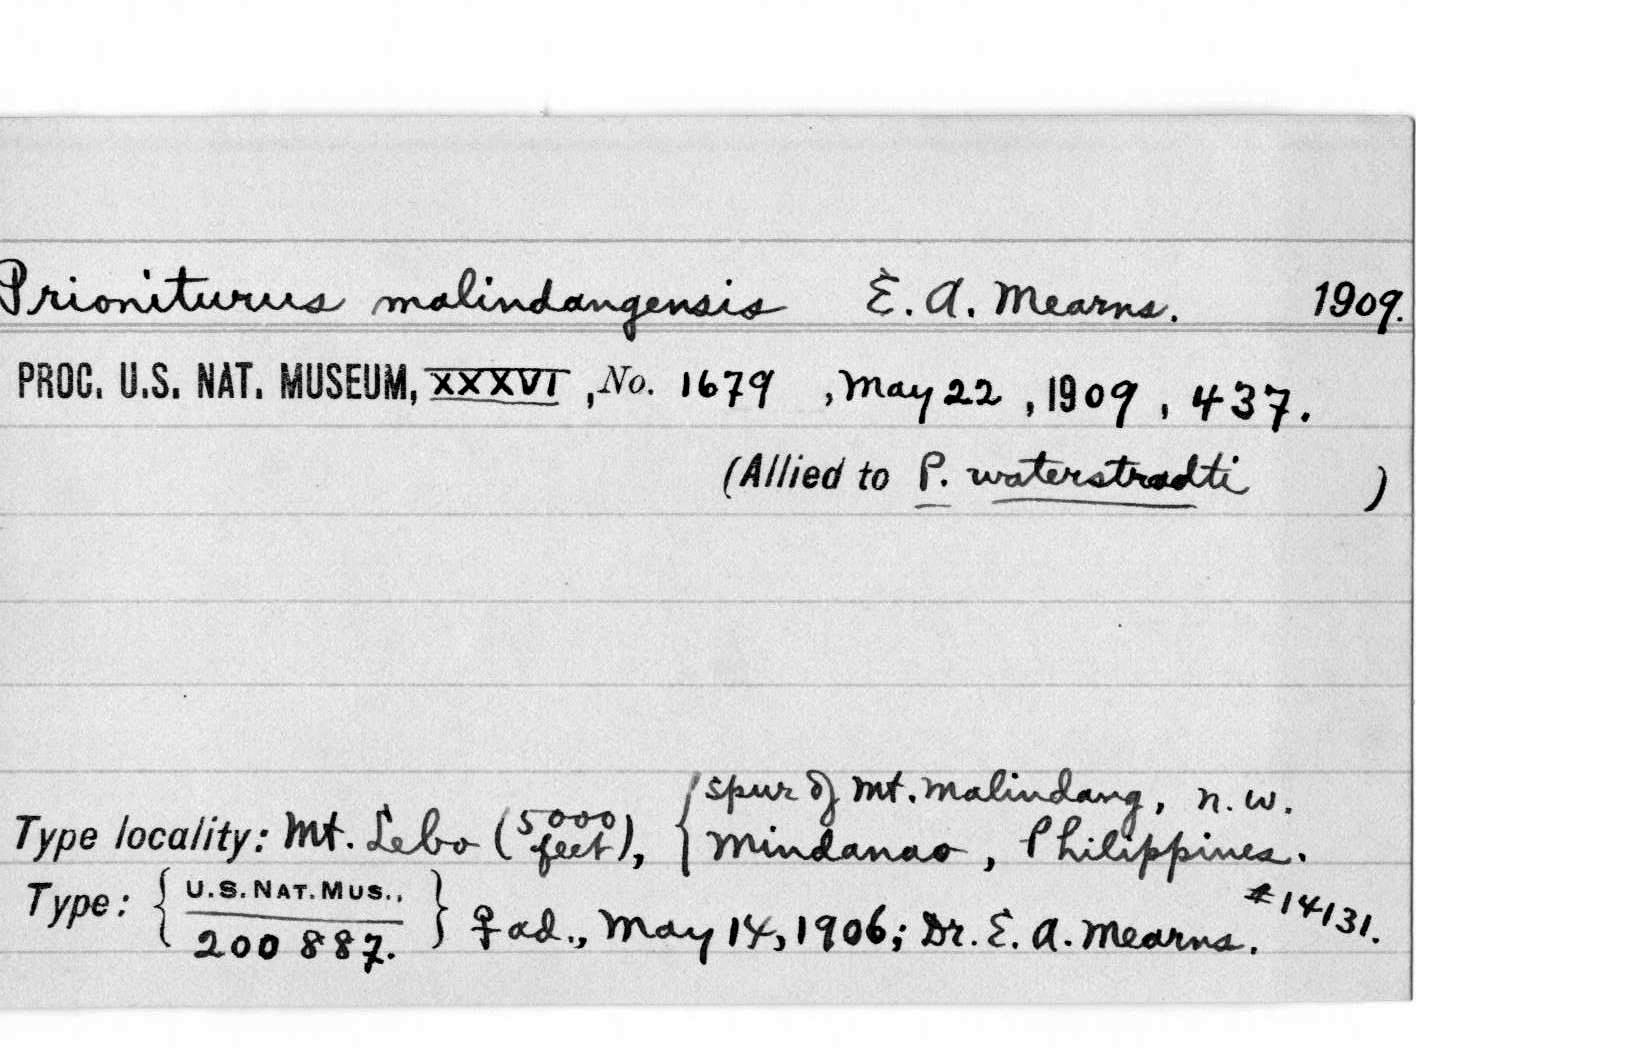 Prioniturus malindangensis E. A. Mearns. 1909.
PROC. U.S. NAT. MUSEUM, XXXVI, No. 1679, May 22, 1909, 437.
(Allied to P. waterstradti )
spur of Mt. Malindang, n. w.
Type locality: Mt. Lebo (5000 feet), Mindanao, Philippines.
Type: { U.S. NAT. MUS., 200887. } ♀ ad., May 14, 1906; Dr. E. A. Mearns. #14131.